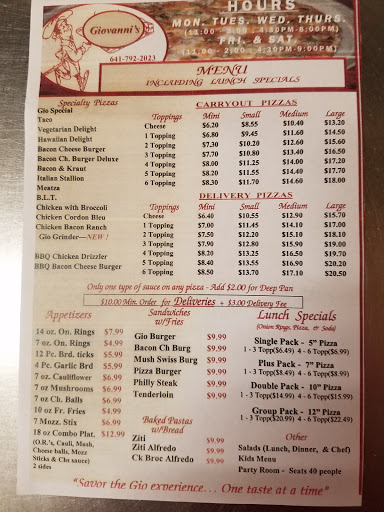 HOURS
MON. TUES. WED. THURS.
(11:00 - 2:00 , 4:30PM-8:00PM)
FRI. & SAT.
(11:00 - 2:00 , 4:30PM-9:00PM)
Giovanni's
641-792-2023
MENU
INCLUDING LUNCH SPECIALS
Specialty Pizzas
Gio Special
Taco
Vegetarian Delight
Hawaiian Delight
Bacon Cheese Burger
Bacon Ch. Burger Deluxe
Bacon & Kraut
Italian Stallion
Meatza
B.L.T.
Chicken with Broccoli
Chicken Cordon Bleu
Chicken Bacon Ranch
Gio Grinder—NEW !
BBQ Chicken Drizzler
BBQ Bacon Cheese Burger
CARRYOUT PIZZAS
Toppings Mini Small Medium Large
Cheese $6.20 $8.55 $10.40 $13.20
1 Topping $6.80 $9.45 $11.60 $14.50
2 Topping $7.30 $10.20 $12.60 $15.60
3 Topping $7.70 $10.80 $13.40 $16.50
4 Topping $8.00 $11.25 $14.00 $17.20
5 Topping $8.20 $11.55 $14.40 $17.70
6 Topping $8.30 $11.70 $14.60 $18.00
DELIVERY PIZZAS
Toppings Mini Small Medium Large
Cheese $6.40 $10.55 $12.90 $15.70
1 Topping $7.00 $11.45 $14.10 $17.00
2 Topping $7.50 $12.20 $15.10 $18.10
3 Topping $7.90 $12.80 $15.90 $19.00
4 Topping $8.20 $13.25 $16.50 $19.70
5 Topping $8.40 $13.55 $16.90 $20.20
6 Topping $8.50 $13.70 $17.10 $20.50
Only one type of sauce on any pizza - Add $2.00 for Deep Pan
$10.00 Min. Order for Deliveries + $3.00 Delivery Fee
Appetizers
14 oz. On. Rings $7.99
7 oz. On. Rings $4.99
12 Pc. Brd. ticks $5.99
4 Pc. Garlic Brd $5.99
7 oz. Cauliflower $6.99
7 oz Mushrooms $6.99
7 oz Ch. Balls $6.99
10 oz Fr. Fries $4.99
7 Mozz. Stix $6.99
18 oz Combo Plat. $12.99
(O.R.'s, Cauli, Mush,
Cheese balls, Mozz
Sticks & Chx sauce)
2 sides
Sandwiches
w/Fries
Gio Burger $9.99
Bacon Ch Burg $9.99
Mush Swiss Burg $9.99
Pizza Burger $9.99
Philly Steak $9.99
Tenderloin $9.99
Baked Pastas
w/Bread
Ziti $9.99
Ziti Alfredo $9.99
Ck Broc Alfredo $9.99
Lunch Specials
(Onion Rings, Pizza, & Soda)
Single Pack - 5" Pizza
1 - 3 Topp($6.49) 4 - 6 Topp($6.99)
Plus Pack - 7" Pizza
1 - 3 Topp($8.49) 4 - 6 Topp($8.99)
Double Pack - 10" Pizza
1 - 3 Topp($14.99) 4 - 6 Topp($15.99)
Group Pack - 12" Pizza
1 - 3 Topp($20.99) 4 - 6 Topp($22.49)
Other
Salads (Lunch, Dinner, & Chef)
Kids Menu
Party Room - Seats 40 people
"Savor the Gio experience... One taste at a time"